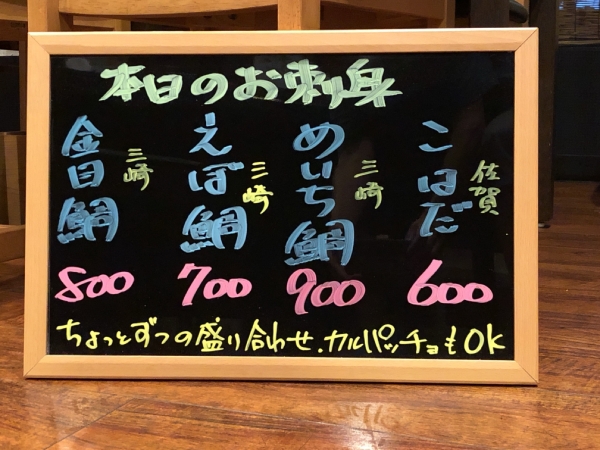 本日のお刺身
こはだ
佐賀
600
めいち鯛
三崎
900
えぼ鯛
三崎
700
金目鯛
三崎
800
ちょっとずつの盛り合わせ、カルパッチョもOK